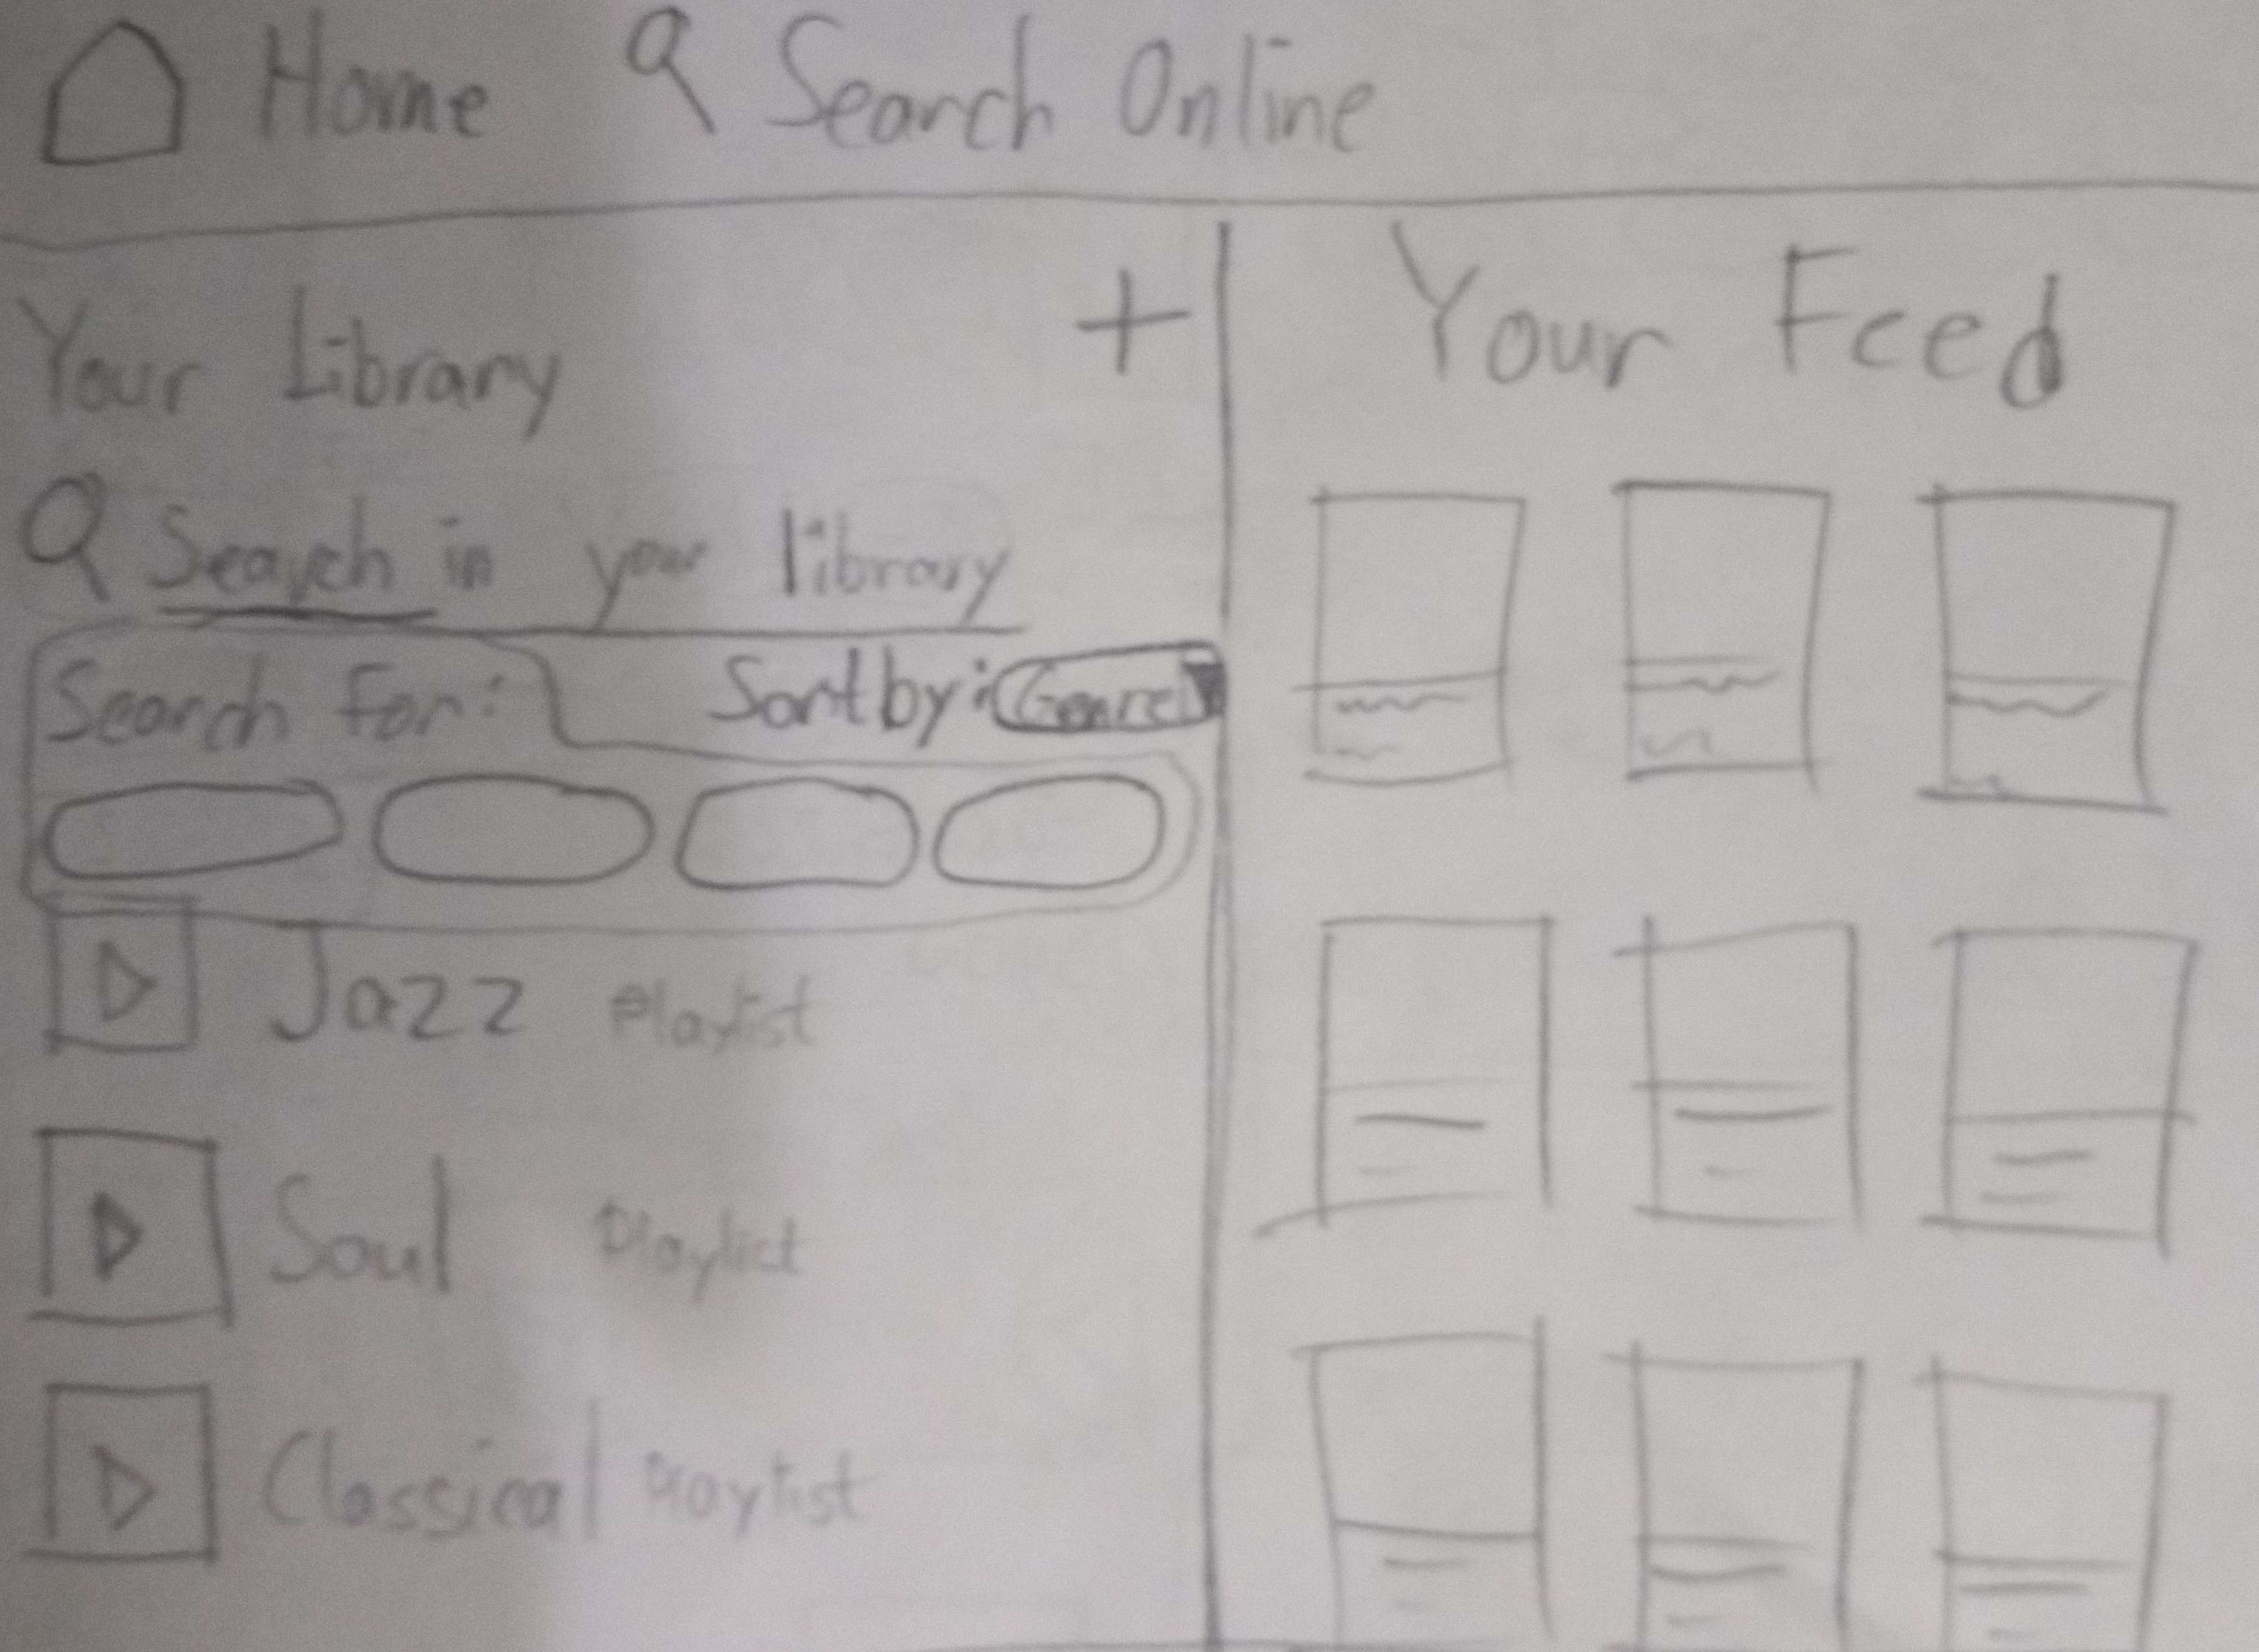 Home Search Online
Your Library +
Search in your library
Search For:
Sort by: Genre
Jazz Playlist
Soul Playlist
Classical Playlist
Your Feed